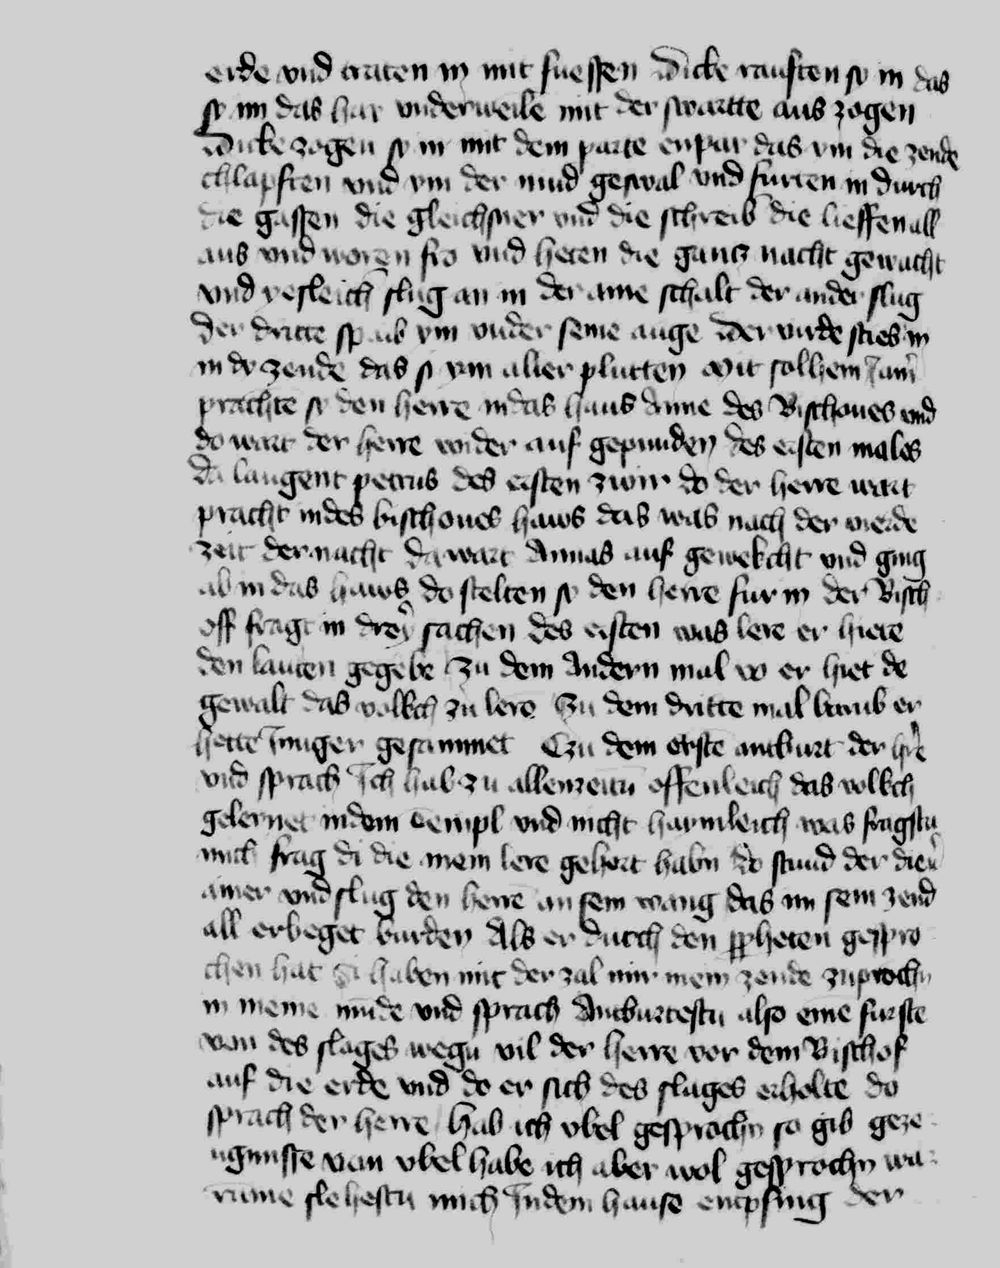 erde vnd traten in mit fuessen Dicke rauften sy in das
sy im das har vnderweile mit der swartte aus zogen
Dicke zogen sy in mit dem parte enpar das ym die zende
chlapften vnd ym der mud geswal vnd furten in durch
die gassen die gleichsner vnd die schreib die lieffen all
aus vnd woren fro vnd heten die gancz nacht gewacht
vnd yesleich slug an in der aine schalt der ander slug
der dritte spaib ym vnder seine auge der virde sties in
in dy zende das sy ym aller plutten Mit solhem Jam̄
prachte sy den herre in das haus Anne des Bischoues vnd
do wart der herre wider auf gepunden des ersten males
da laugent petrus des ersten zwir do der herre wart
pracht in des bischoues haws das was nach der vierde
zeit der nacht da wart Annas auf gewekcht vnd ging
ab in das haws do stelten sy den herre fur in der Bisch
off fragt in dreÿ sachen des ersten was lere er hiete
den lauten gegebe Zu dem Andern mal wo er hiet de
gewalt das volkch zu lere Zu dem dritte mal warub er
hette Junger gesammet Czu dem erste antburt der hr̄e
vnd sprach Ich hab zu allenzeitn offenleich das volkch
gelernet in dem tempel vnd nicht haymleich was fragstu
mich frag di die mein lere gehort habn do stund der dien̄
ainer vnd slug den herre an sein wang das im sein zend
all erbeget wurden Als er durch den ꝓpheten gespro
chen hat Si haben mit der zal mir mein zende zuprochn
in meine mude vnd sprach Antburtestu also eine furste
van des slages wegn vil der herre vor dem Bischof
auf die erde vnd do er sich des slages erholte do
sprach der herre Hab ich vbel gesprochn so gib geze
ugnusse van vbel habe ich aber wol gesprochn wa
rume slehestu mich In dem hause empfing der